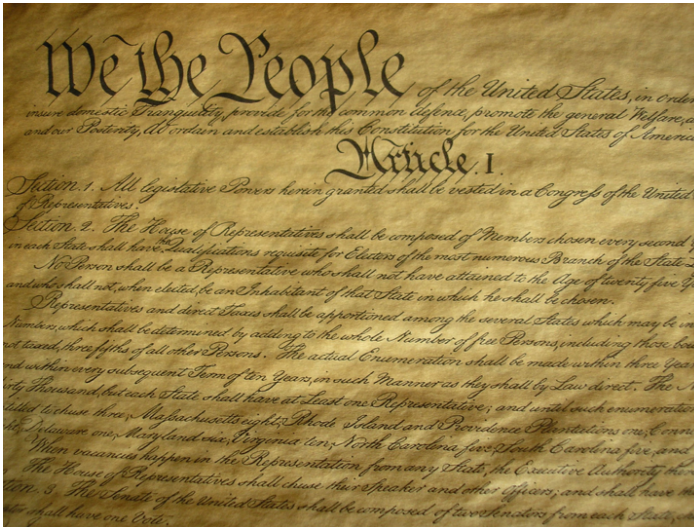 We the People of the United States, in Order
insure domestic Tranquility, provide for the common defence, promote the general Welfare,
and our Posterity, do ordain and establish this Constitution for the United States of America
Article. I.
Section. 1. All legislative Powers herein granted shall be vested in a Congress of the United
of Representatives.
Section. 2. The House of Representatives shall be composed of Members chosen every second
in each State shall have the Qualifications requisite for Electors of the most numerous Branch of the State
No Person shall be a Representative who shall not have attained to the Age of twenty five
and who shall not, when elected, be an Inhabitant of that State in which he shall be chosen.
Representatives and direct Taxes shall be apportioned among the several States which may be
Numbers, which shall be determined by adding to the whole Number of free Persons, including those
not taxed, three fifths of all other Persons. The actual Enumeration shall be made within three
and within every subsequent Term of ten Years, in such Manner as they shall by Law direct. The
Thousand, but each State shall have at Least one Representative; and until such enumeration
to chuse three, Massachusetts eight, Rhode Island and Providence Plantations one,
Delaware one, Maryland six, Virginia ten, North Carolina five, South Carolina five, and
When vacancies happen in the Representation from any State, the Executive Authority
The House of Representatives shall chuse their Speaker and other Officers; and shall have
3. The Senate of the United States shall be composed of two Senators from each State,
shall have one Vote.